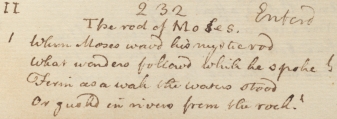 II 232 Enterd
The rod of Moses.
1 When Moses wav'd his mystic rod
What wonders follow'd while he spoke
Firm as a wall the waters stood
Or gush'd in rivers from the rock!